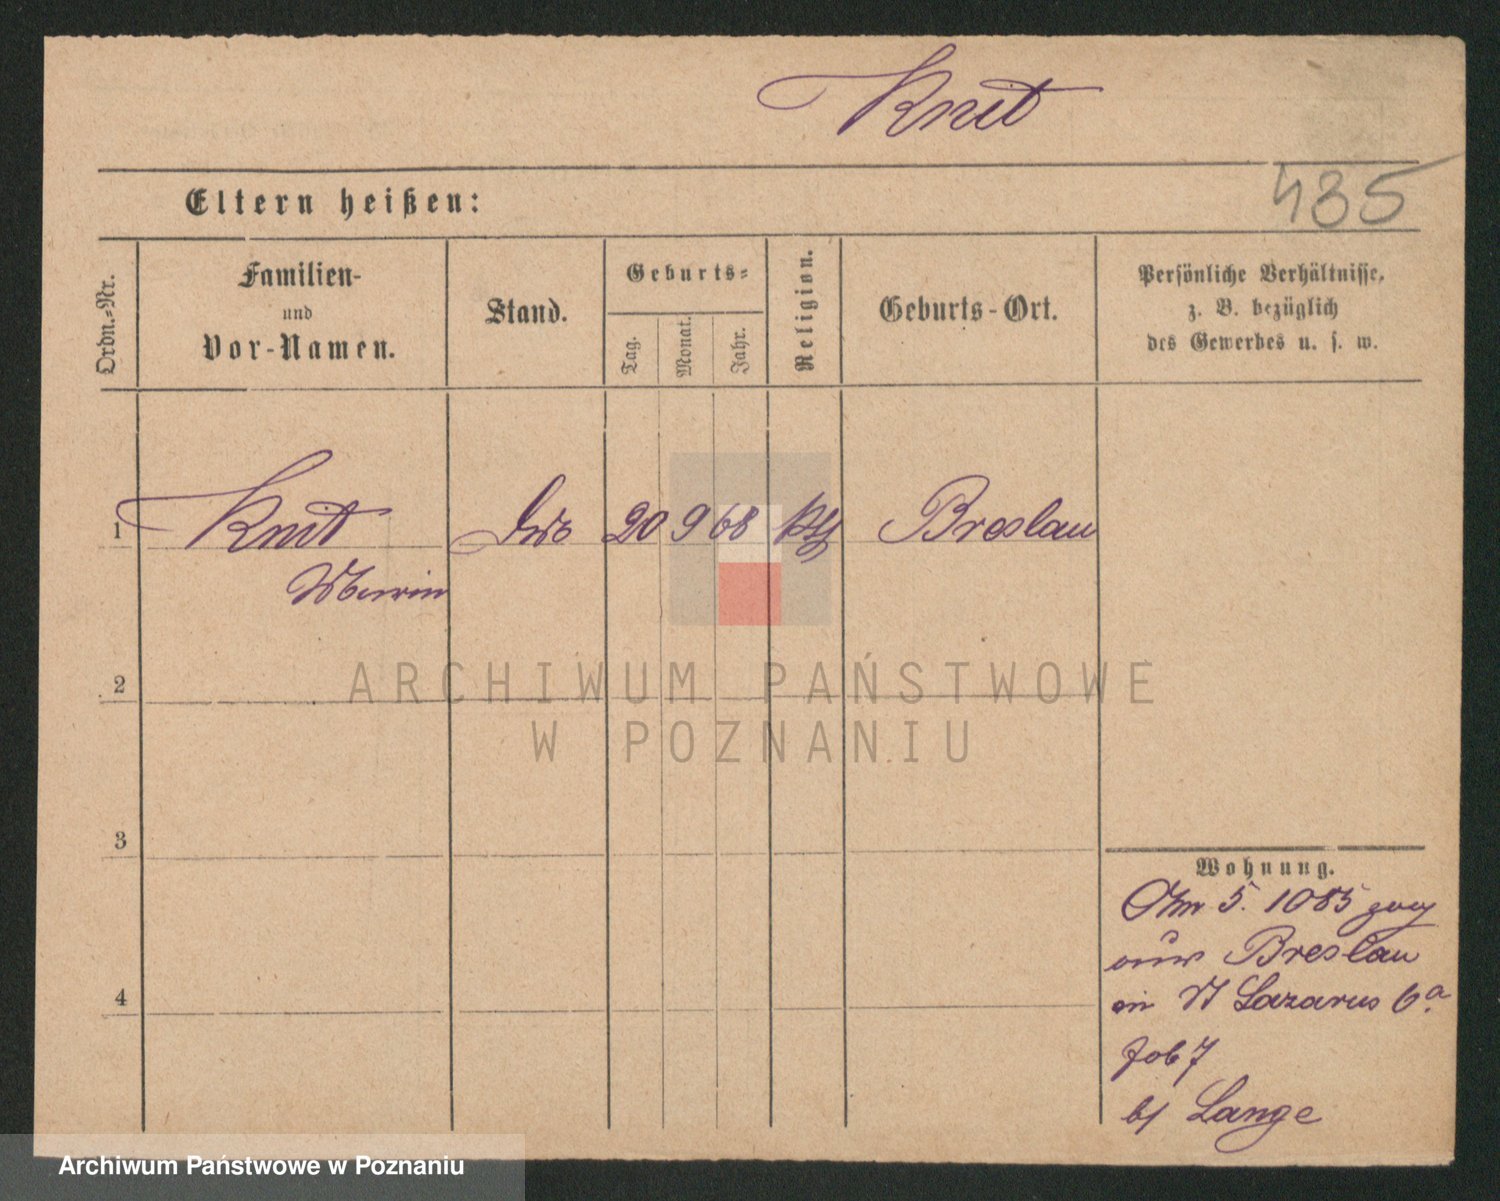 Knit
485
Eltern heißen:
Ordn.-Nr.
Familien-
und
Vor-Namen.
Stand.
Geburts-
Tag.
Monat.
Jahr.
Religion.
Geburts-Ort.
Persönliche Verhältnisse,
z. B. bezüglich
des Gewerbes u. s. w.
1 Knit 20 9 68 kth Breslau
2
3
4
ARCHIWUM PAŃSTWOWE
W POZNANIU
Wohnung.
Am 5. 1085 zug
aus Breslau
in St Lazarus 6a.
Lange
Archiwum Państwowe w Poznaniu